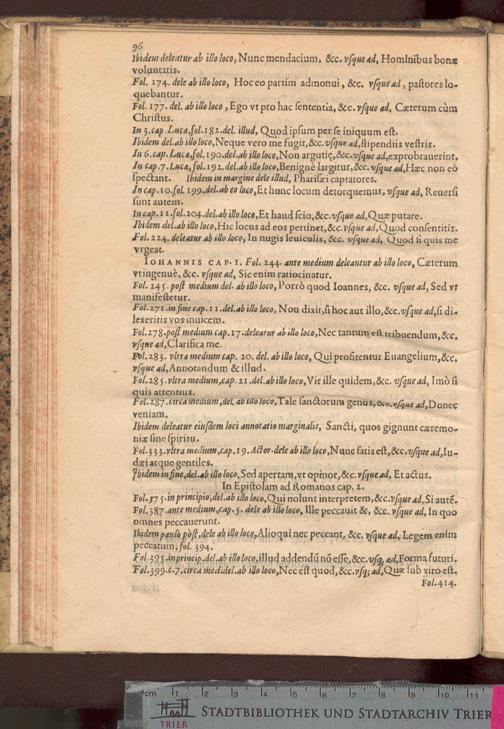 96
Ibidem deleatur ab illo loco, Nunc mendacium, &c. vsque ad, Hominibus bonæ
voluntatis.
Fol. 174. dele ab illo loco, Hoc eo partim admonui, &c. vsque ad, pastores lo-
quebantur.
Fol. 177. del. ab illo loco, Ego vt pro hac sententia, &c. vsque ad, Cæterum cùm
Christus.
In 3. cap. Lucæ, fol. 182. del. illud, Quod ipsum per se iniquum est.
Ibidem del. ab illo loco, Neque vero me fugit, &c. vsque ad, stipendiis vestris.
In 6. cap. Lucæ, fol. 190. del. ab illo loco, Non argutię, &c. vsque ad, exprobrauerint,
In cap. 7. Lucæ, fol. 192. del. ab illo loco, Benignè largitur, &c. vsque ad, Hæc non eò
spectant. Ibidem in margine dele illud, Pharisæi captatores.
In cap. 10. fol. 199. del. ab eo loco, Et hunc locum detorquemus, vsque ad, Reuersi
sunt autem.
In cap. 11. fol. 204. del. ab illo loco, Et haud scio, &c. vsque ad, Quæ putare.
Ibidem del. ab illo loco, Hic locus ad eos pertinet, &c. vsque ad, Quod consentitis.
Fol. 224. deleatur ab illo loco, In nugis leuiculis, &c. vsque ad, Quod si quis me
vrgeat.
IOHANNIS CAP. I. Fol. 244. ante medium deleantur ab illo loco, Cæterum
vt ingenuè, &c. vsque ad, Sic enim ratiocinatur.
Fol. 245. post medium del. ab illo loco, Porrò quod Ioannes, &c. vsque ad, Sed vt
manifestetur.
Fol. 271. in fine cap. 11. del. ab illo loco, Non dixit, si hoc aut illo, &c. vsque ad, si di-
lexeritis vos inuicem.
Fol. 278. post medium cap. 17. deleatur ab illo loco, Nec tantum est tribuendum, &c.
vsque ad, Clarifica me.
Fol. 283. vltra medium cap. 20. del. ab illo loco, Qui profitentur Euangelium, &c.
vsque ad, Annotandum & illud.
Fol. 285. vltra medium, cap. 21. del. ab illo loco, Vir ille quidem, &c. vsque ad, Imò si
quis attentius.
Fol. 287. circa medium, del. ab illo loco, Tale sanctorum genus, &c. vsque ad, Donec
veniam.
Ibidem deleatur eiusdem loci annotatio marginalis, Sancti, quos gignunt cæremo-
niæ sine spiritu.
Fol. 333. vltra medium, cap. 19. Actor. dele ab illo loco, Nunc satis est, &c. vsque ad, Iu-
dæi atque gentiles.
Ibidem in fine, del. ab illo loco, Sed apertam, vt opinor, &c. vsque ad, Et actus.
In Epistolam ad Romanos cap. 2.
Fol. 375. in principio, del. ab illo loco, Qui nolunt interpretem, &c. vsque ad, Si autē.
Fol. 387. ante medium, cap. 5. dele ab illo loco, Ille peccauit &, &c. vsque ad, In quo
omnes peccauerunt.
Ibidem paulò pòst, dele ab illo loco, Alioqui nec peccant, &c. vsque ad, Legem enim
peccatum, fol. 394.
Fol. 395. in princip. del. ab illo loco, illud addendū nō esse, &c. vsq; ad, Forma futuri.
Fol. 399. c. 7. circa med. del. ab illo loco, Nec est quod, &c. vsq; ad, Quæ sub viro est.
Fol. 414.
cm 1 2 3 4 5 6 7 8 9 10 11
TRIER
STADTBIBLIOTHEK UND STADTARCHIV TRIER